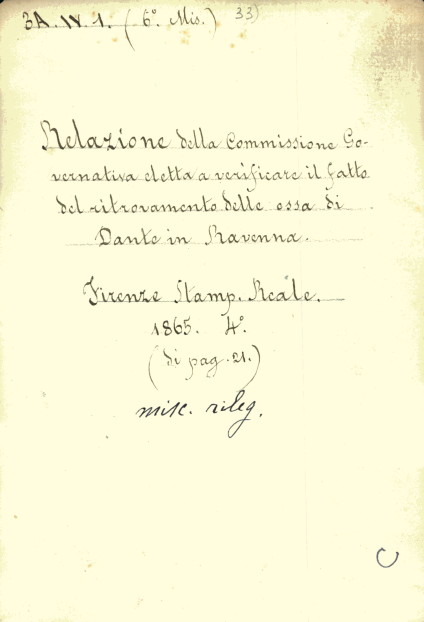 3A. IV. 1. (6°. Mis.) 33)
Relazione della Commissione Go-
vernativa eletta a verificare il fatto
del ritrovamento delle ossa di
Dante in Ravenna.
Firenze Stamp. Reale.
1865. 4°.
(di pag. 21.)
misc. rileg.
C